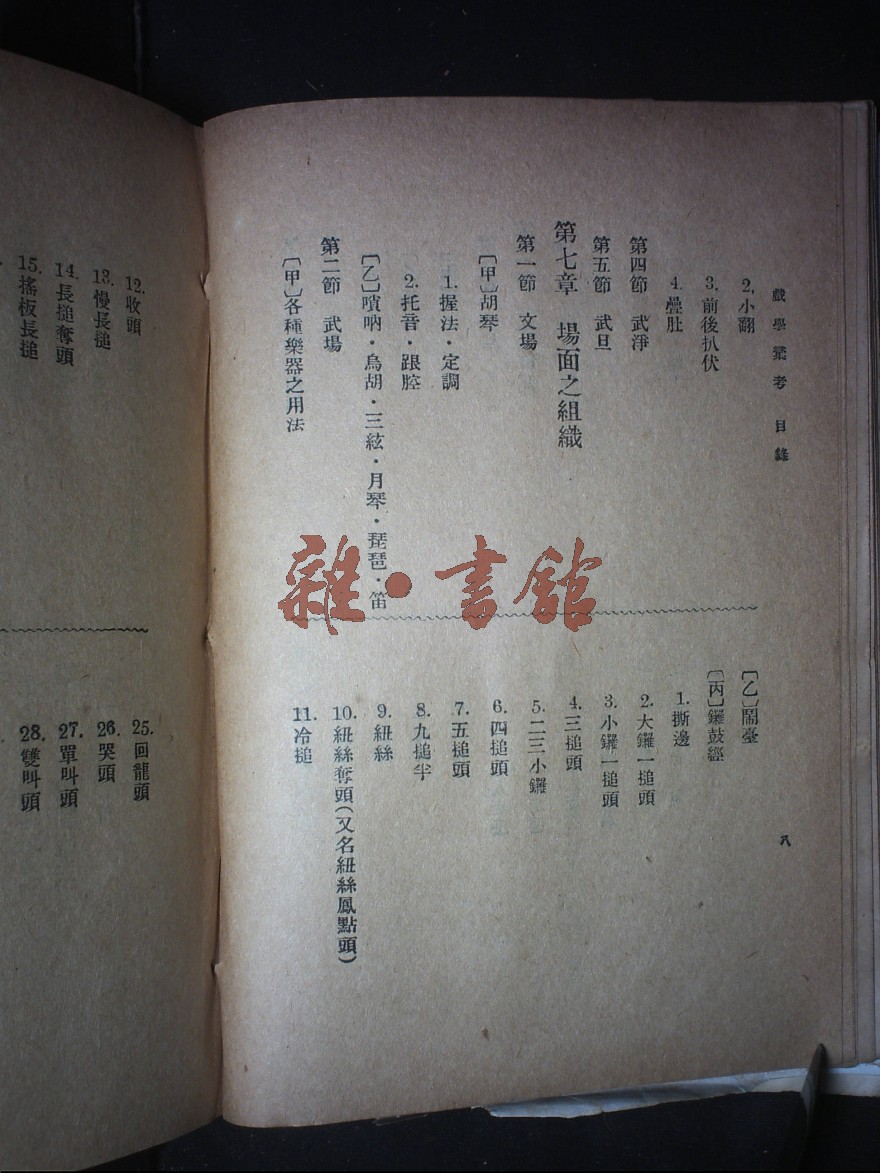 戲學彙考 目錄
八
2.小翻
3.前後扒伏
4.疊肚
第四節 武淨
第五節 武旦
第七章 場面之組織
第一節 文場
〔甲〕胡琴
1.握法·定調
2.托音·跟腔
〔乙〕嗩吶·烏胡·三絃·月琴·琵琶·笛
第二節 武場
〔甲〕各種樂器之用法
〔乙〕鬧臺
〔丙〕鑼鼓經
1.撕邊
2.大鑼一搥頭
3.小鑼一搥頭
4.三搥頭
5.二三小鑼
6.四搥頭
7.五搥頭
8.九搥半
9.紐絲
10.紐絲奪頭(又名紐絲鳳點頭)
11.冷搥
12.收頭
13.慢長搥
14.長搥奪頭
15.搖板長搥
25.回龍頭
26.哭頭
27.單叫頭
28.雙叫頭
雜·書館